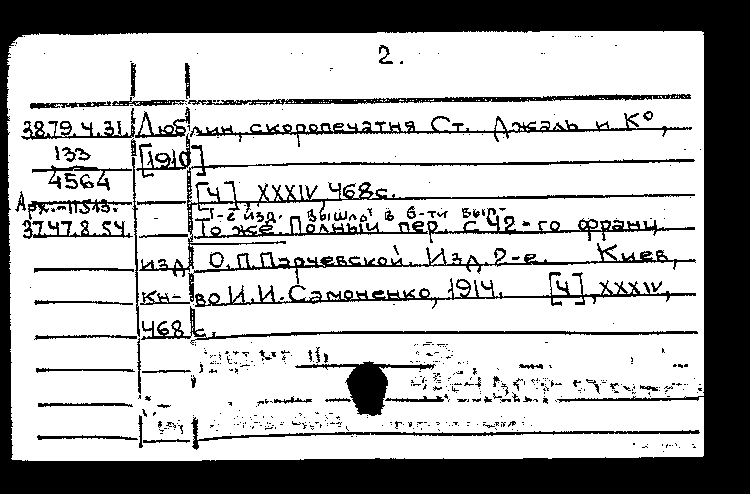 2.
38.79.4.31. Люблин, скоропечатня Ст. Джаль и К⁰,
133 [1910]
4564 [4], XXXIV, 468с.
Арх.-11513. 1-е изд. вышло в 6-ти вып.
37.47.8.54. То же. Полный пер. с 42-го франц.
изд. О.П.Парчевской. Изд. 2-е. Киев,
кн-во И.И.Самоненко, 1914. [4], XXXIV,
468 с.